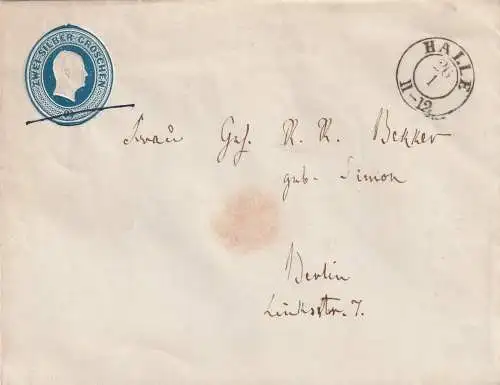 ZWEI SILBER-GROSCHEN
HALLE
26
1
11-12
Frau Geh. R. R. Bekker
geb. Simon
Berlin
Linkstr. 7.